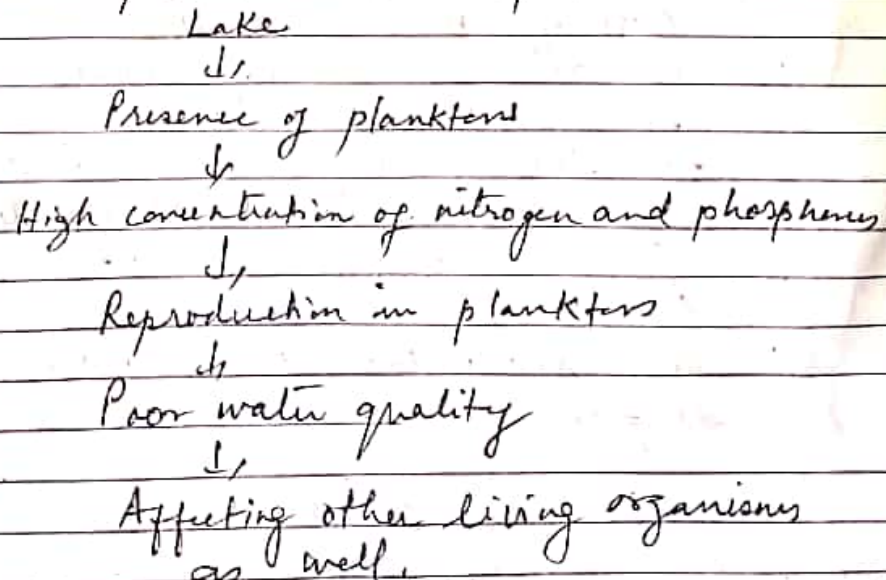 Lake
↓
Presence of planktons
↓
High concentration of nitrogen and phosphorus
↓
Reproduction in planktons
↓
Poor water quality
↓
Affecting other living organisms
as well.